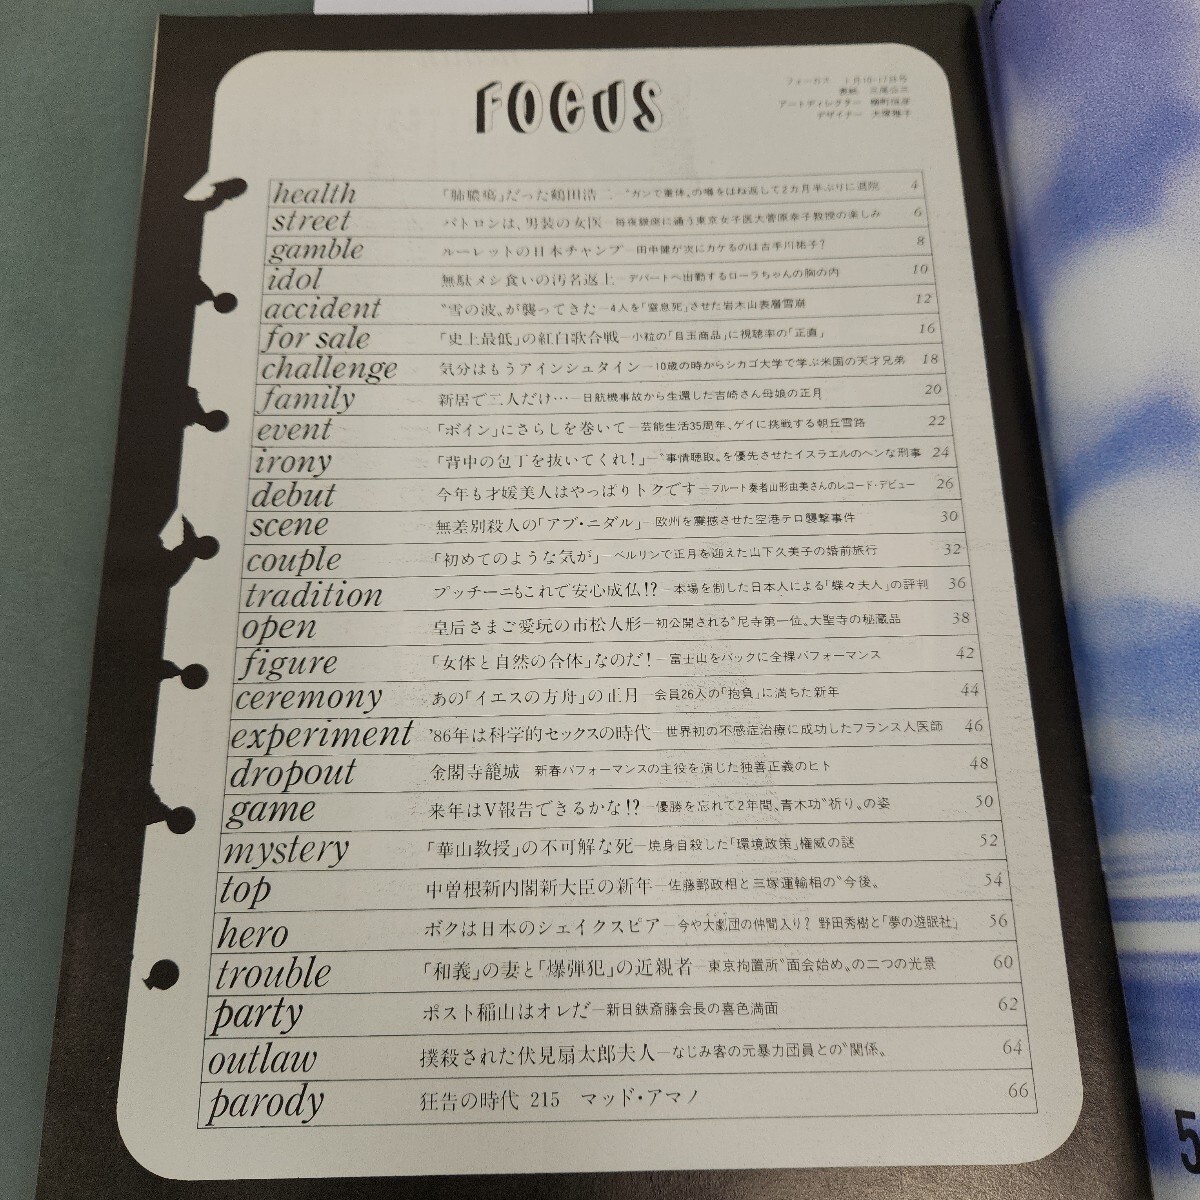 FOCUS
フォーカス 1月10・17日号
表紙 三尾公三
アートディレクター
デザイナー 大塚雅子
health 「肺膿瘍」だった鶴田浩二―“ガンで重体〟の噂をはね返して2カ月半ぶりに退院 4
street パトロンは、男装の女医―毎夜銀座に通う東京女子医大菅原幸子教授の楽しみ 6
gamble ルーレットの日本チャンプ―田中健が次にカケるのは古手川祐子? 8
idol 無駄メシ食いの汚名返上―デパートへ出勤するローラちゃんの胸の内 10
accident “雪の波〟が襲ってきた―4人を「窒息死」させた岩木山表層雪崩 12
for sale 「史上最低」の紅白歌合戦―小粒の「目玉商品」に視聴率の「正直」 16
challenge 気分はもうアインシュタイン―10歳の時からシカゴ大学で学ぶ米国の天才兄弟 18
family 新居で二人だけ…―日航機事故から生還した吉崎さん母娘の正月 20
event 「ボイン」にさらしを巻いて―芸能生活35周年、ゲイに挑戦する朝丘雪路 22
irony 「背中の包丁を抜いてくれ!」―“事情聴取〟を優先させたイスラエルのヘンな刑事 24
debut 今年も才媛美人はやっぱりトクです―フルート奏者山形由美さんのレコード・デビュー 26
scene 無差別殺人の「アブ・ニダル」―欧州を震撼させた空港テロ襲撃事件 30
couple 「初めてのような気が」―ベルリンで正月を迎えた山下久美子の婚前旅行 32
tradition プッチーニもこれで安心成仏!?―本場を制した日本人による「蝶々夫人」の評判 36
open 皇后さまご愛玩の市松人形―初公開される“尼寺第一位〟大聖寺の秘蔵品 38
figure 「女体と自然の合体」なのだ!―富士山をバックに全裸パフォーマンス 42
ceremony あの「イエスの方舟」の正月―会員26人の「抱負」に満ちた新年 44
experiment '86年は科学的セックスの時代―世界初の不感症治療に成功したフランス人医師 46
dropout 金閣寺籠城 新春パフォーマンスの主役を演じた独善正義のヒト 48
game 来年はV報告できるかな!?―優勝を忘れて2年間、青木功“祈り〟の姿 50
mystery 「華山教授」の不可解な死―焼身自殺した「環境政策」権威の謎 52
top 中曽根新内閣新大臣の新年―佐藤郵政相と三塚運輸相の“今後〟 54
hero ボクは日本のシェイクスピア―今や大劇団の仲間入り? 野田秀樹と「夢の遊眠社」 56
trouble 「和義」の妻と「爆弾犯」の近親者―東京拘置所“面会始め〟の二つの光景 60
party ポスト稲山はオレだ―新日鉄斎藤会長の喜色満面 62
outlaw 撲殺された伏見扇太郎夫人―なじみ客の元暴力団員との“関係〟 64
parody 狂告の時代 215 マッド・アマノ 66
5